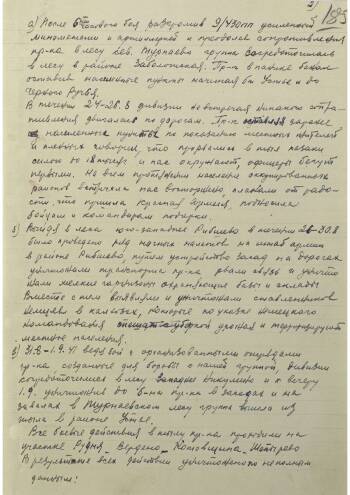 3)
185
а) После 6 часового боя разгромив 9/430пп усиленный
минометами и артиллерией и преодолев сопротивление
пр-ка в лесу вев. группа сосредоточилась
в лесу в районе Заболотская. Пр-к в панике бежал
оставив населенные пункты начиная бы Устье и до
Чёрного Ручья.
В течении 24-26.8 дивизии не встречая никакого сопро-
тивления двигалась по дорогам. Пр-к оставлял заранее
населенные пункты по показанию местных жителей
и пленных говорили, что прорвались в тыл казаки
силою до 18 тысяч и нас окружают, офицеры бегут
первыми. На всем протяжении население оккупированных
районов встречали нас восторженно, плакали от радо-
сти, что пришла красная армия, подносили
бойцам и командирам подарки.
б) Выйдя в леса юго-западнее Рибшево в течении 26-30.8
было проведено ряд ночных налетов на штаб армии
в районе Рибшево, путем устройства засад на дорогах
уничтожали транспорта пр-ка, рвали связь и уничто-
жали мелкие гарнизоны охраняющие базы и склады
Вместе с тем выявляли и уничтожали ставленников
немцев в колхозах, которые по указке немецкого
командования урожая и терроризируют
местное население.
в) 31.8-1.9.41 ведя бой с организованными отрядами
пр-ка созданные для борьбы с нашей группой, дивизии
сосредоточились в лесу западнее Никулино и к вечеру
1.9. уничтожив до б-на пр-ка в засадах и на
завалах в лесу группа вышла из
тыла в районе Устье.
Все боевые действия в тылу пр-ка проходили на
участке Рудня - Вердено - Котовщина - Шатырево
В результате всех действий уничтожено по неполным
данным: